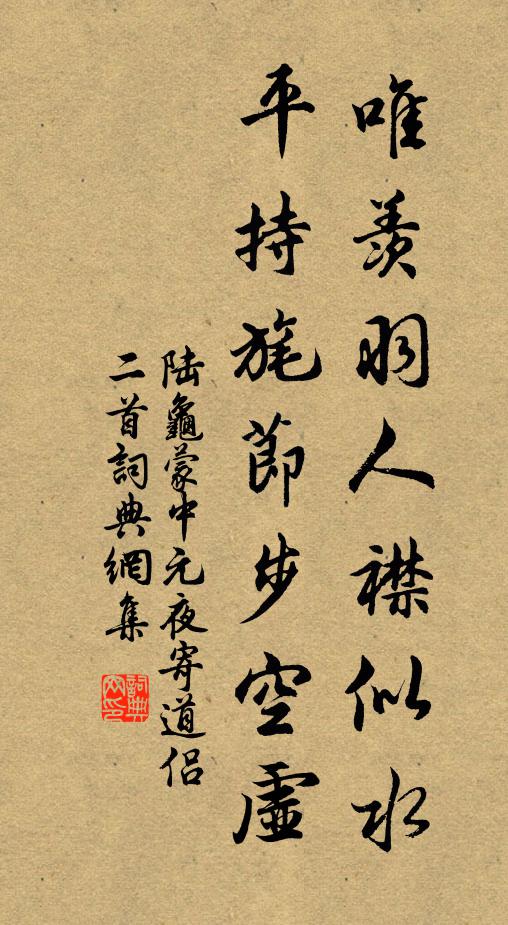 唯羨羽人襟似水
平持旄節步空虛
陆龜蒙中元夜寄道侶
二首詞典網集
詞典網印